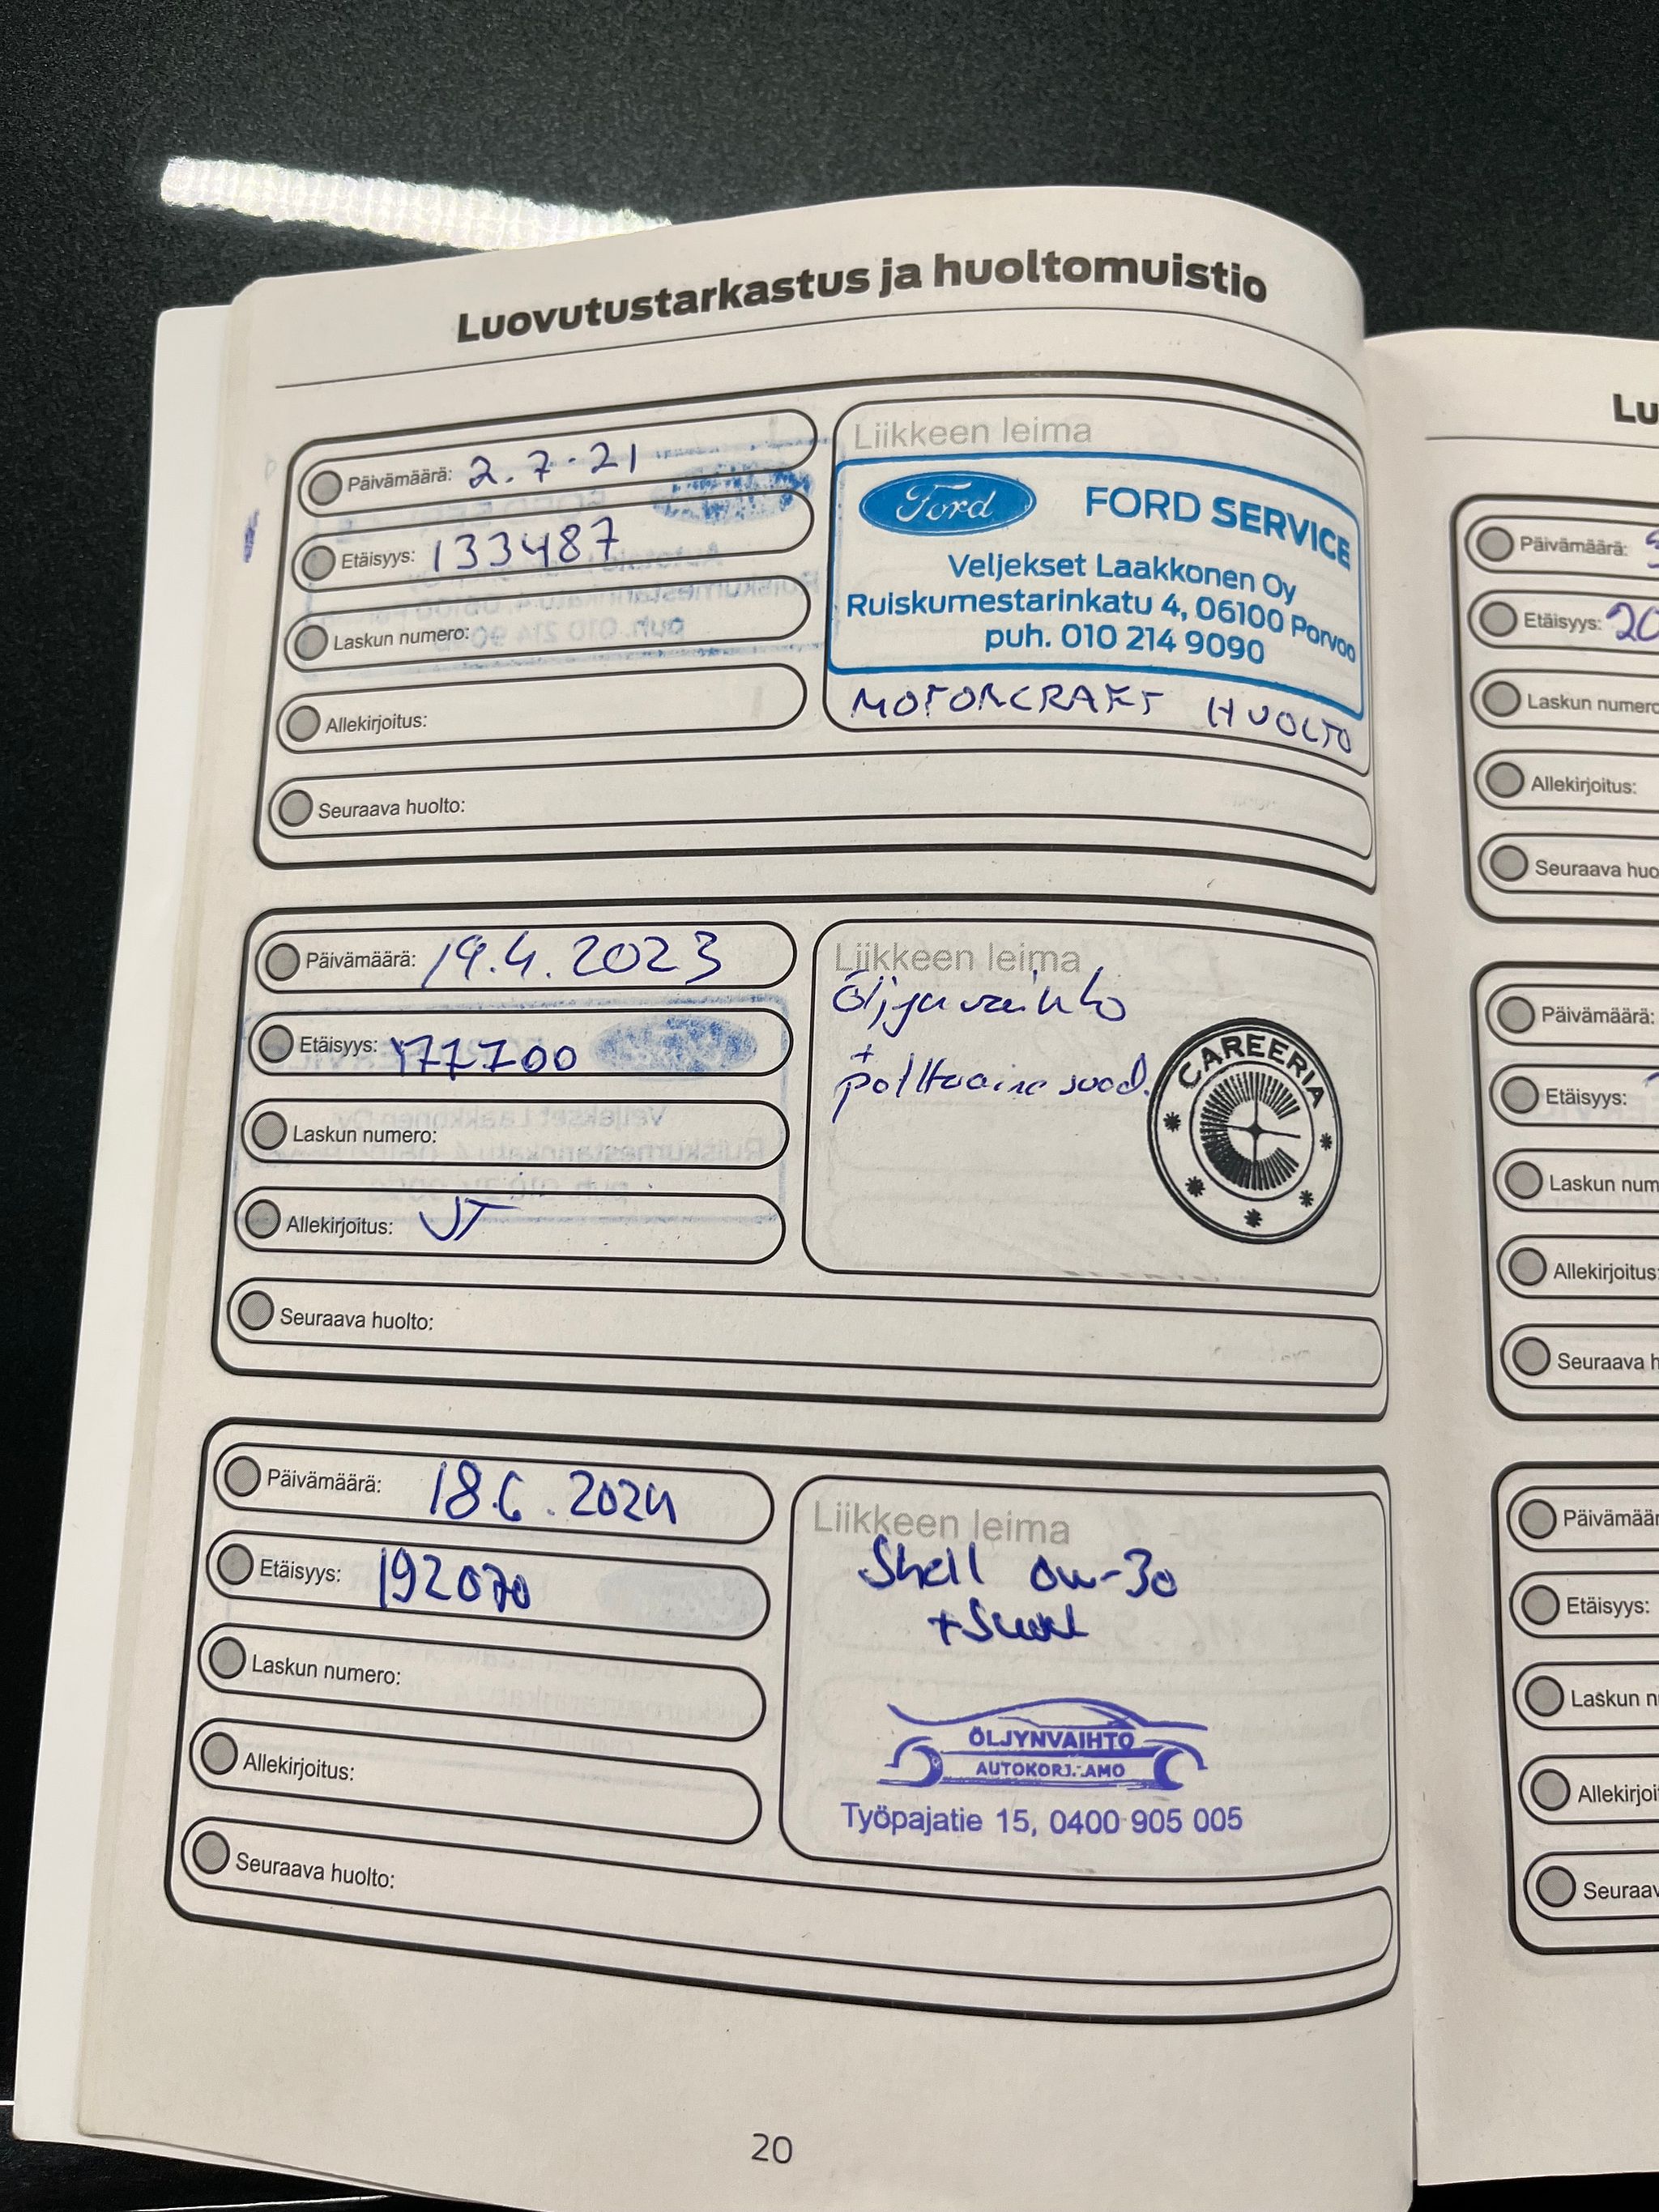 Luovutustarkastus ja huoltomuistio
Päivämäärä: 2.7.21
Etäisyys: 133487
Laskun numero:
Allekirjoitus:
Seuraava huolto:
Liikkeen leima
Ford FORD SERVICE
Veljekset Laakkonen Oy
Ruiskumestarinkatu 4, 06100 Porvoo
puh. 010 214 9090
MOTORCRAFT HUOLTO
Päivämäärä: 19.4.2023
Etäisyys: 177700
Laskun numero:
Allekirjoitus: JT
Seuraava huolto:
Liikkeen leima
Öljynvaihto
+
polttoaine suod.
CAREERIA
Päivämäärä: 18.6.2024
Etäisyys: 192070
Laskun numero:
Allekirjoitus:
Seuraava huolto:
Liikkeen leima
Shell 0w-30
ÖLJYNVAIHTO
Työpajatie 15, 0400 905 005
20
Lu
Päivämäärä:
Etäisyys: 20
Laskun numero
Allekirjoitus:
Seuraava huo
Päivämäärä:
Etäisyys:
Laskun num
Allekirjoitus:
Seuraava h
Päivämäär
Etäisyys:
Laskun n
Allekirjoi
Seuraav